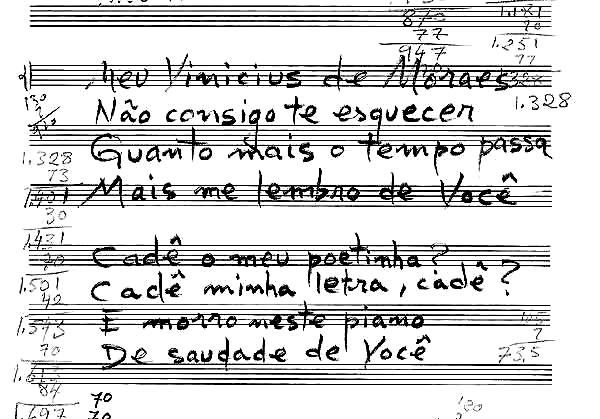 870
77
947
1.251
77
1.328
Meu Vinicius de Moraes
Não consigo te esquecer
Quanto mais o tempo passa
Mais me lembro de Você
Cadê o meu poetinha?
Cadê minha letra, cadê?
E morro neste piano
De saudade de Você
130
1.328
73
30
1.431
70
1.501
42
1.543
70
1.613
84
1.697
7
73,5
70
70